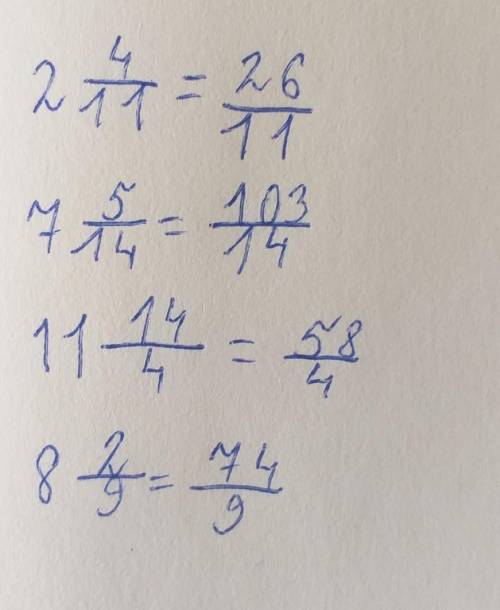 2 4/11 = 26/11
7 5/14 = 103/14
11 14/4 = 58/4
8 2/9 = 74/9